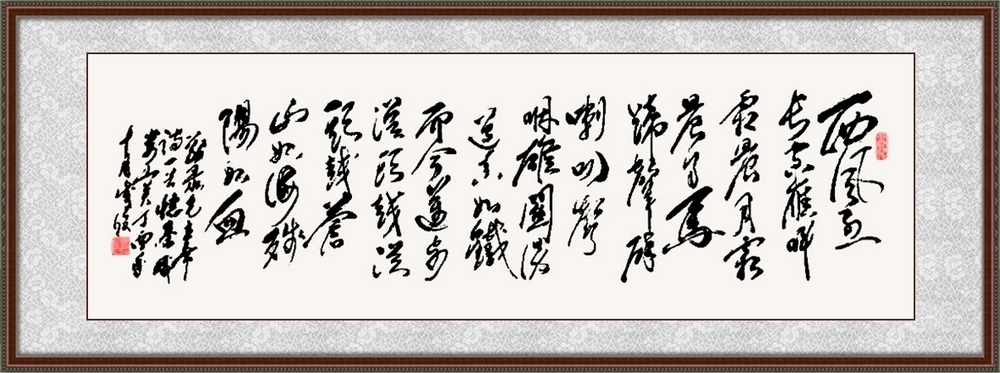 西風烈
長空雁叫
霜晨月霜
晨月馬
蹄聲碎
喇叭聲
咽雄關漫
道真如鐵
而今邁步
從頭越從
頭越蒼
山如海殘
陽如血
錄毛主席
詩一首憶秦娥
婁山關丁酉年
十月